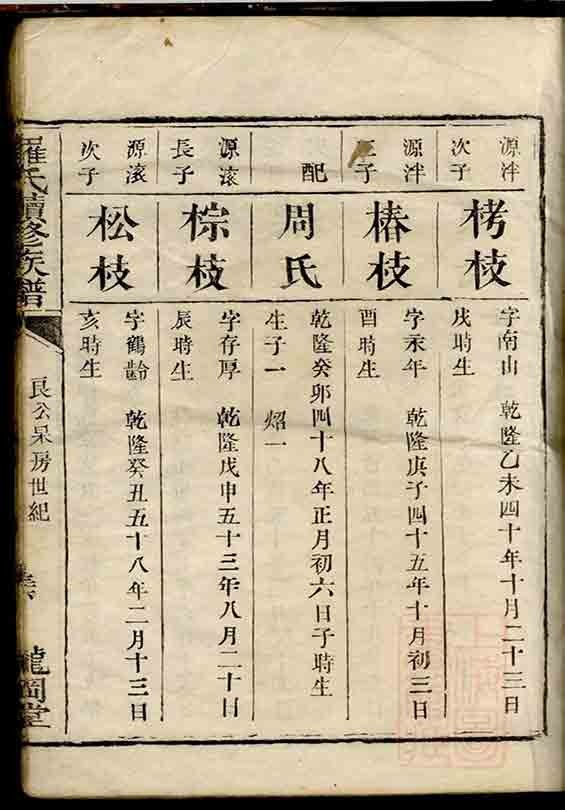 源泮
次子
栲枝
字南山 乾隆乙未四十年十月二十三日
戌時生
源泮
三子
椿枝
字永年 乾隆庚子四十五年十月初三日
酉時生
配
周氏
乾隆癸卯四十八年正月初六日子時生
生子一 炤一
源滚
長子
棕枝
字存厚 乾隆戊申五十三年八月二十日
辰時生
源滚
次子
松枝
字鶴齡 乾隆癸丑五十八年二月十三日
亥時生
羅氏續修族譜
良公杲房世紀
龍岡堂